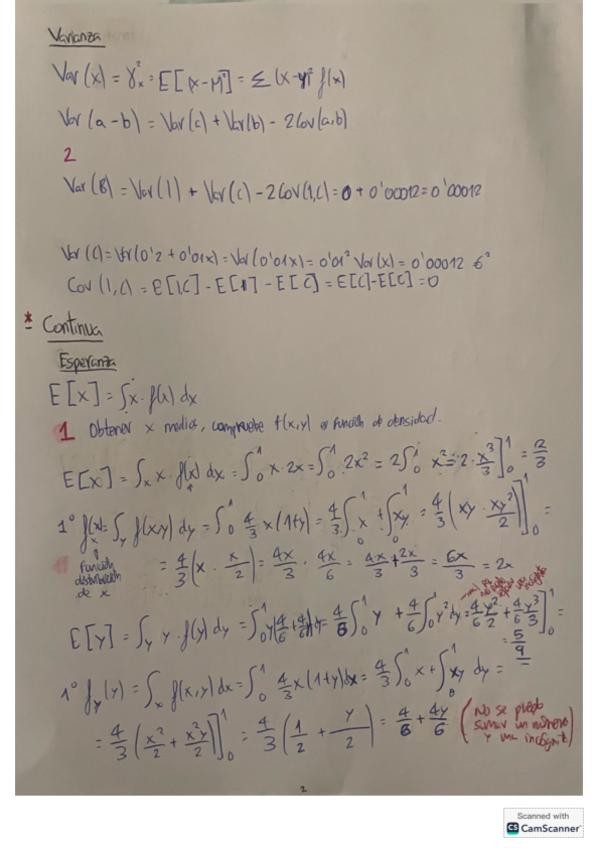 Varianza
Var(x) = γ²ₓ = E[(x-M)²] = Σ (x-y)² f(x)
Var(a-b) = Var(c) + Var(b) - 2Cov(a,b)
2
Var(B) = Var(1) + Var(c) - 2Cov(1,C) = 0 + 0'00012 = 0'00012
Var(C) = Var(0'2 + 0'01x) = Var(0'01x) = 0'01² Var(x) = 0'00012 €²
Cov(1,C) = E[1,C] - E[1] - E[C] = E[C] - E[C] = 0
* Continua
Esperanza
E[x] = ∫x · f(x) dx
1 Obtener x media, compruebe f(x,y) es función de densidad.
E[x] = ∫ₓ x · f(x) dx = ∫₀¹ x · 2x = ∫₀¹ 2x² = 2∫₀¹ x² = 2 · x³/3]₀¹ = 2/3
1º fₓ(x) = ∫y f(x,y) dy = ∫₀¹ 4/3 x(1+y) = 4/3 ∫₀¹ x + ∫₀¹ xy = 4/3 (xy · xy²/2)]₀¹ =
Función distribución de x
= 4/3 (x · x/2) = 4x/3 · 4x/6 = 4x/3 + 2x/3 = 6x/3 = 2x
E[y] = ∫y y · f(y) dy = ∫₀¹ y(4/6 + 4/6 y) dy = 4/6 ∫₀¹ y + 4/6 ∫₀¹ y² dy = 4/6 y²/2 + 4/6 y³/3]₀¹ =
= 5/9
1º fy(y) = ∫ₓ f(x,y) dx = ∫₀¹ 4/3 x(1+y) dx = 4/3 ∫₀¹ x + ∫₀¹ xy dy =
= 4/3 (x²/2 + x²y/2)]₀¹ = 4/3 (1/2 + y/2) = 4/6 + 4y/6 (No se puede sumar un número y una incógnita)
2
Scanned with
CS CamScanner